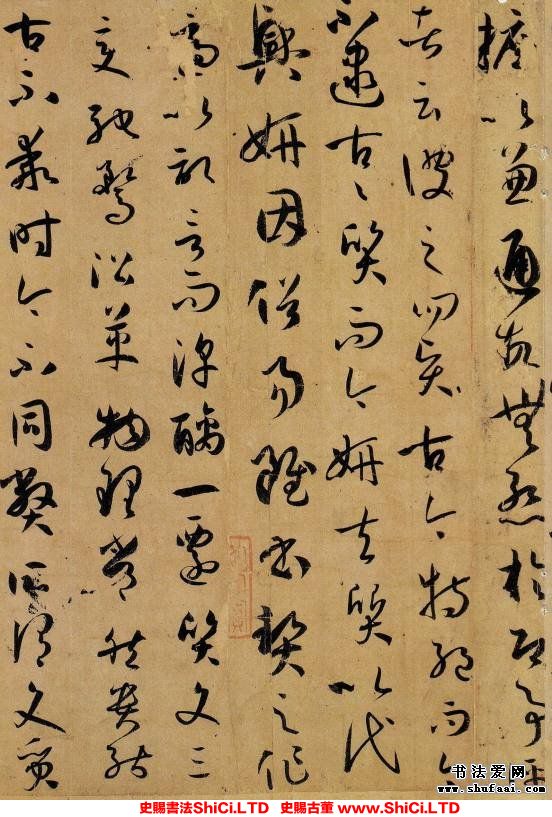 摭以兼通故無慙於即事評
者云彼之四賢古今特絕而今
不逮古〻質而今妍夫質以代
興妍因俗易雖書契之作
適以記言而淳醨一遷質文三
變馳騖沿革物理常然貴能
古不乖時今不同弊所謂文質
书法爱网
www.shufaai.com
史賜書法ShiCi.LTD 史賜古董 www.ShiCi.LTD